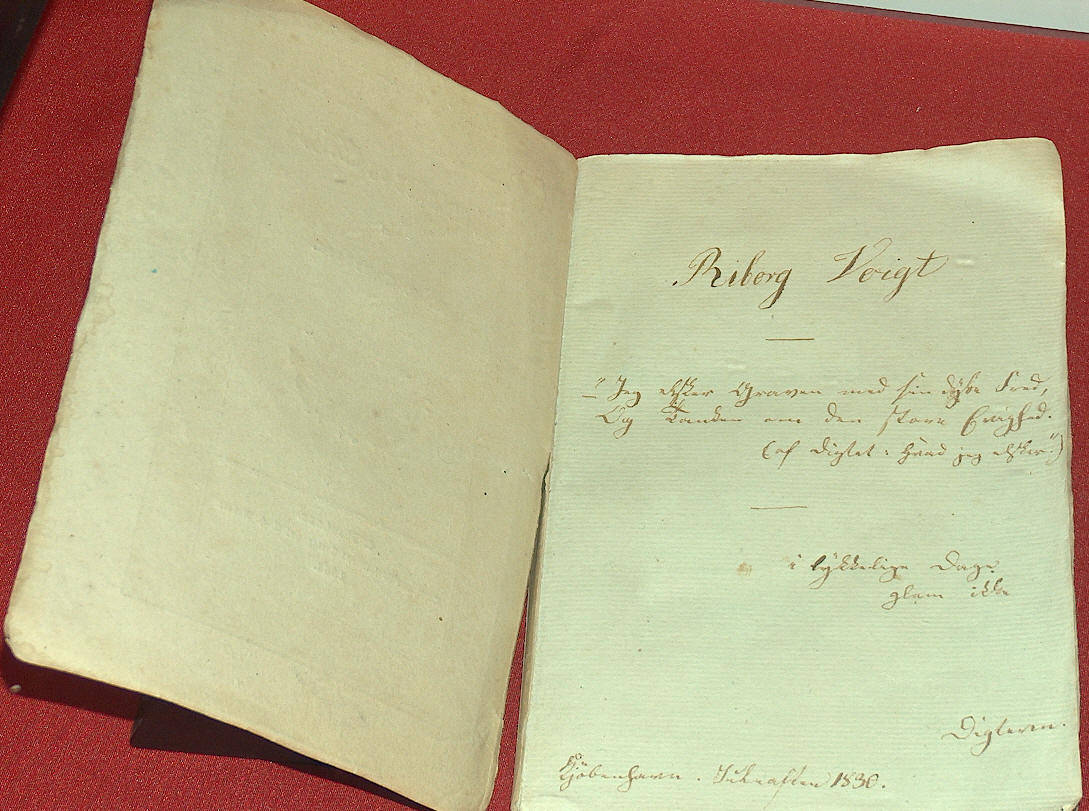 Riborg Voigt
"Jeg elsker Graven med sin dybe Fred,
Og Tanken om den store Evighed.
(af Digtet: Hvad jeg elsker")
i lykkelige Dage
glem ikke
Digteren.
Kjöbenhavn. Juleaften 1830.